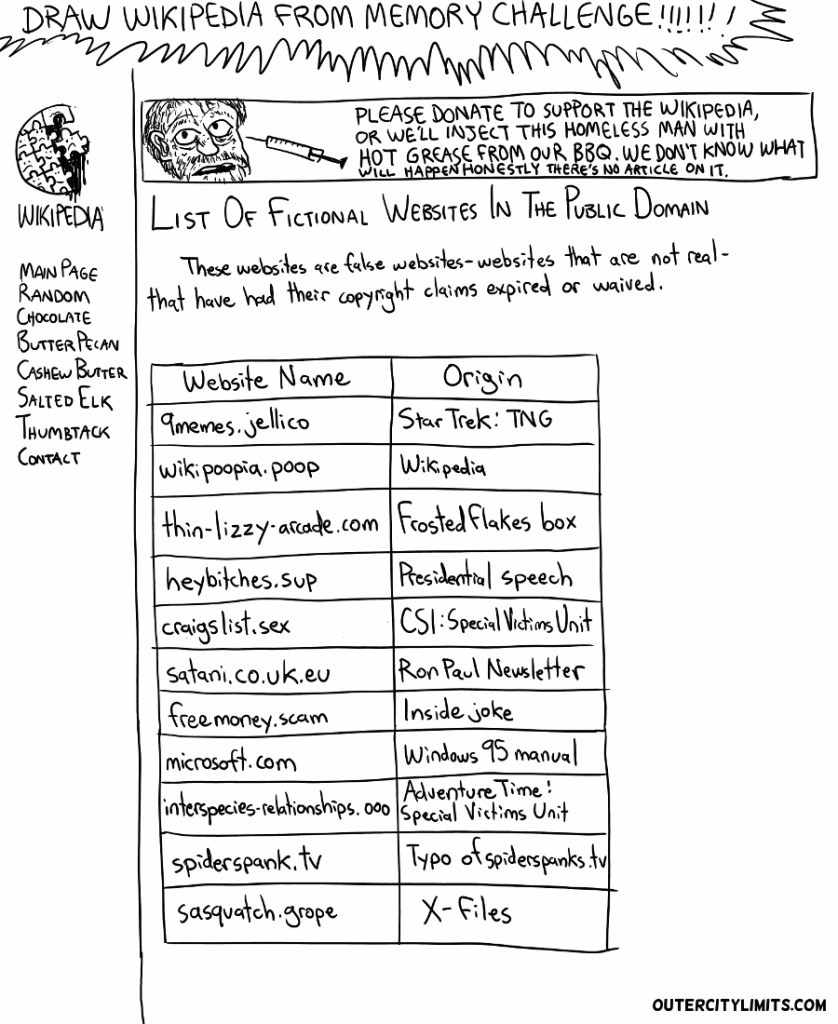 DRAW WIKIPEDIA FROM MEMORY CHALLENGE!!!!!!!
PLEASE DONATE TO SUPPORT THE WIKIPEDIA,
OR WE'LL INJECT THIS HOMELESS MAN WITH
HOT GREASE FROM OUR BBQ. WE DON'T KNOW WHAT
WILL HAPPEN HONESTLY THERE'S NO ARTICLE ON IT.
WIKIPEDIA
MAIN PAGE
RANDOM
CHOCOLATE
BUTTER PECAN
CASHEW BUTTER
SALTED ELK
THUMBTACK
CONTACT
LIST OF FICTIONAL WEBSITES IN THE PUBLIC DOMAIN
These websites are false websites-websites that are not real-
that have had their copyright claims expired or waived.
Website Name Origin
9memes.jellico Star Trek: TNG
wikipoopia.poop Wikipedia
thin-lizzy-arcade.com Frosted Flakes box
heybitches.sup Presidential speech
craigslist.sex CSI: Special Victims Unit
satani.co.uk.eu Ron Paul Newsletter
freemoney.scam Inside joke
microsoft.com Windows 95 manual
interspecies-relationships.ooo Adventure Time:
Special Victims Unit
spiderspank.tv Typo of spiderspanks.tv
sasquatch.grope X-Files
OUTERCITYLIMITS.COM